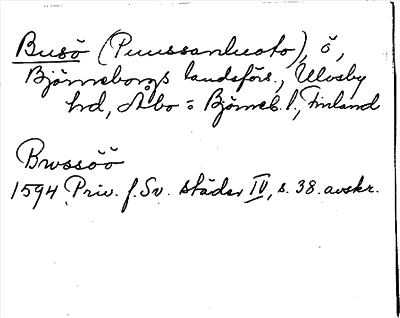 Busö (Puussanluoto), ö,
Björneborgs landsförs., Ulvsby
hd, Åbo = Björneb. l., Finland
Brvssöö
1594 Priv. f. Sv. städer IV, s. 38. avskr.